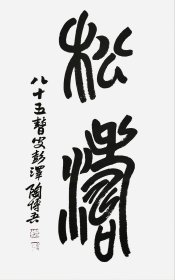 松濤
八十五瞽叟彭澤陶博吾